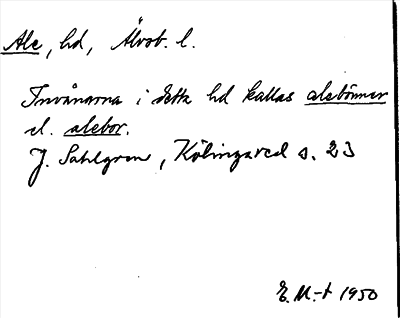 Ale, hd, Älvsb. l.
Invånarna i detta hd kallas alebönner
el. alebor.
J. Sahlgren, Kölingared s. 23
E. M.-t 1950